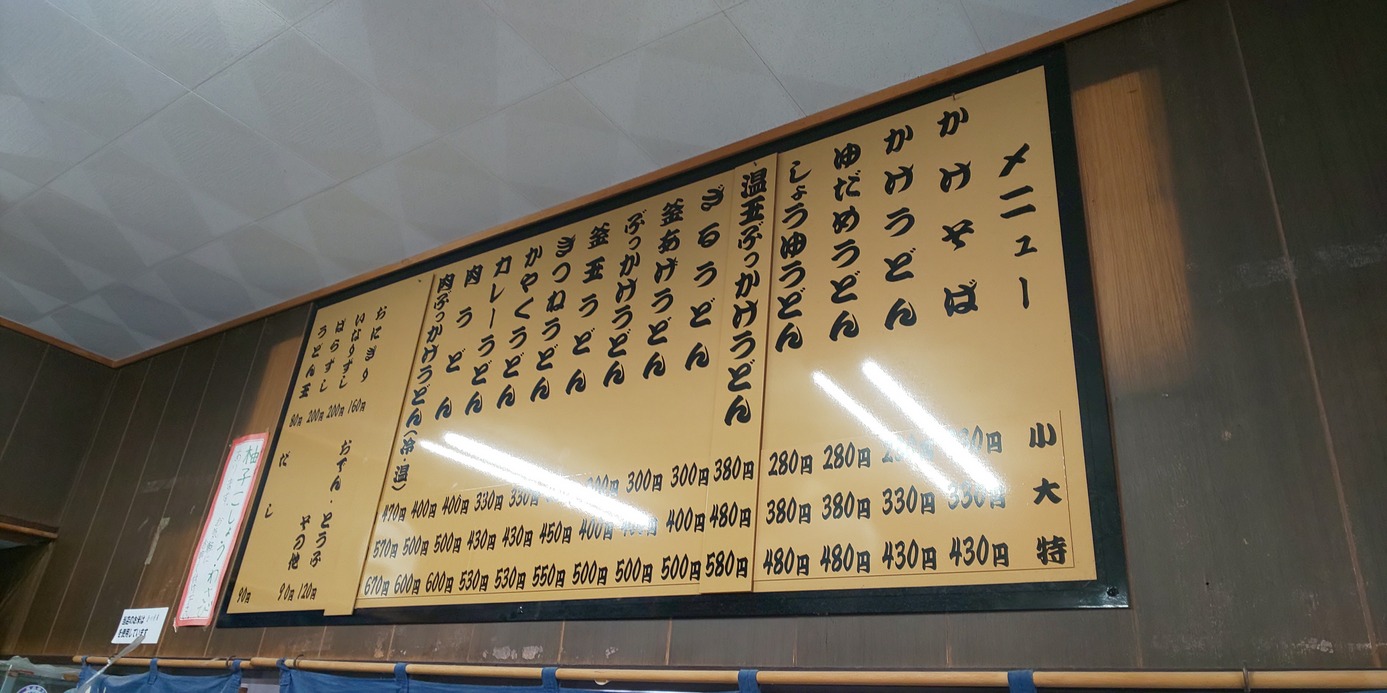 メニュー 小 大 特
かけそば 330円 430円
かけうどん 330円 430円
ゆだめうどん 280円 380円 480円
しょうゆうどん 280円 380円 480円
温玉ぶっかけうどん 380円 480円 580円
ざるうどん 300円 400円 500円
釜あげうどん 300円 500円
ぶっかけうどん 400円 500円
釜玉うどん 450円 550円
きつねうどん 330円 430円 530円
かやくうどん 330円 430円 530円
カレーうどん 400円 500円 600円
肉うどん 400円 500円 600円
肉ぶっかけうどん(冷・温) 470円 570円 670円
おにぎり 160円
いなりずし 200円
ばらずし 200円
うどん玉 80円
おでん・とうふ 120円
その他 90円
だし 90円
柚子こしょう・わさび
当店のお米は
を使用しています